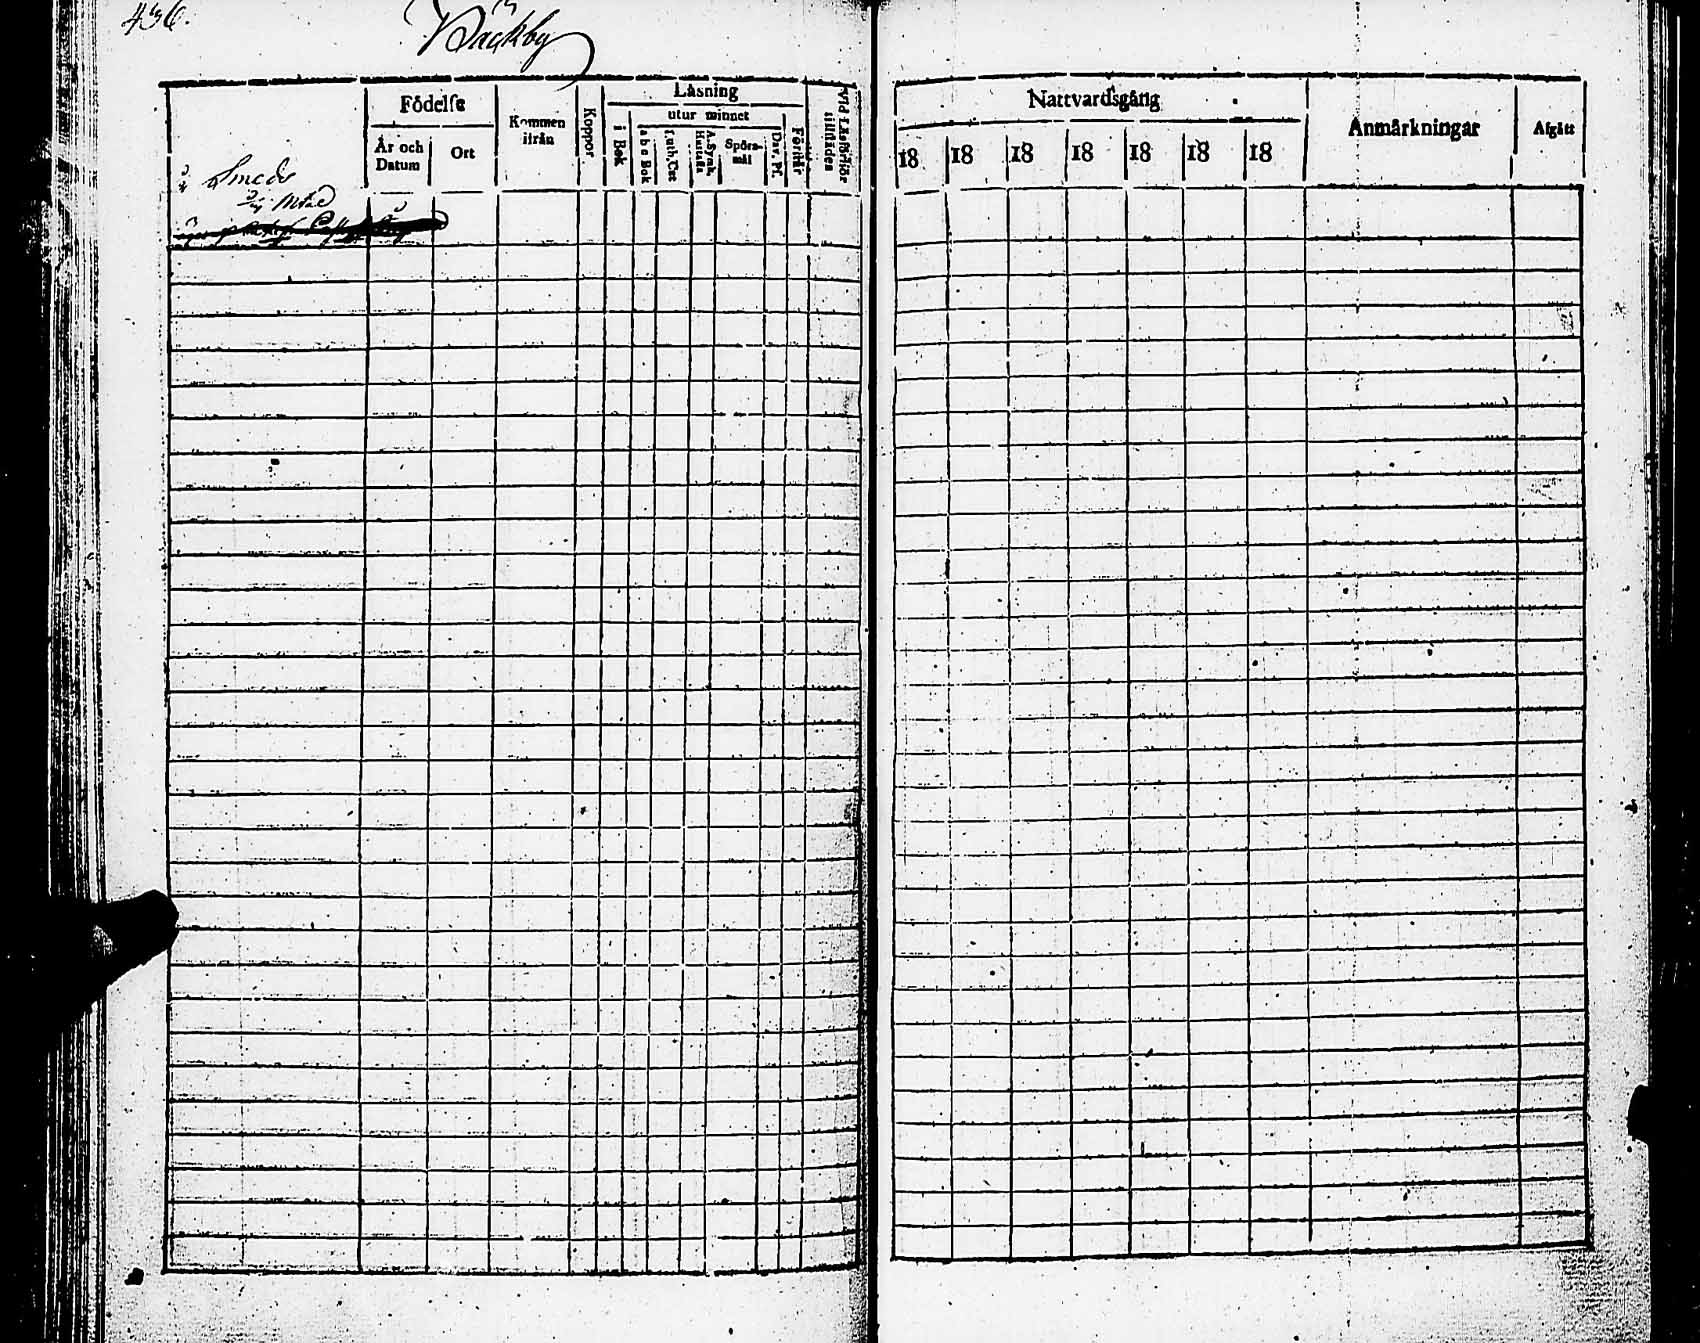 436.
Bäckby
Födelse
År och Datum
Ort
Kommen ifrån
Koppor
Läsning
i Bok
utur minnet
a b c Bok
Luth. Cat
A. Symb.
Hustafla
Spörs-mål
Dav. Ps.
Förstår
Vid Läsförhör tillstädes
Smeds
Nattvardsgång
18 18 18 18 18 18 18
Anmärkningar
Afgått